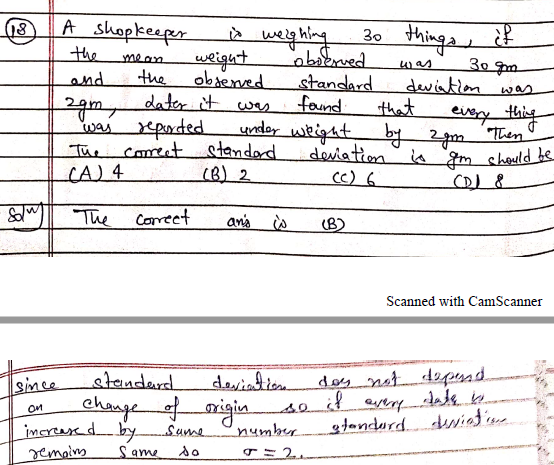 (18) A shopkeeper is weighing 30 things, if
the mean weight observed was 30 gm
and the observed standard deviation was
2gm, later it was found that every thing
was reported under weight by 2gm Then
The correct standard deviation is gm should be
(A) 4 (B) 2 (C) 6 (D) 8
Solⁿ) The correct ans is (B)
Scanned with CamScanner
since standard deviation does not depend
on change of origin so if every data is
increased by same number standard deviation
remains same so σ = 2.